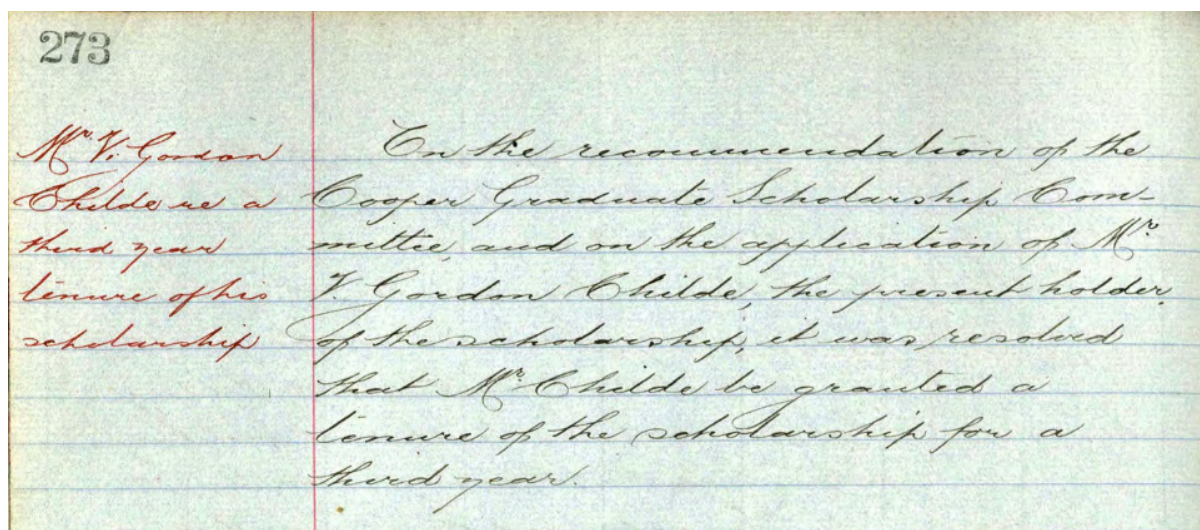 273
Mr. V. Gordon
Childe re a
third year
tenure of his
scholarship
On the recommendation of the
Cooper Graduate Scholarship Com-
mittee, and on the application of Mr.
V. Gordon Childe, the present holder,
of the scholarship, it was resolved
that Mr. Childe be granted a
tenure of the scholarship for a
third year.